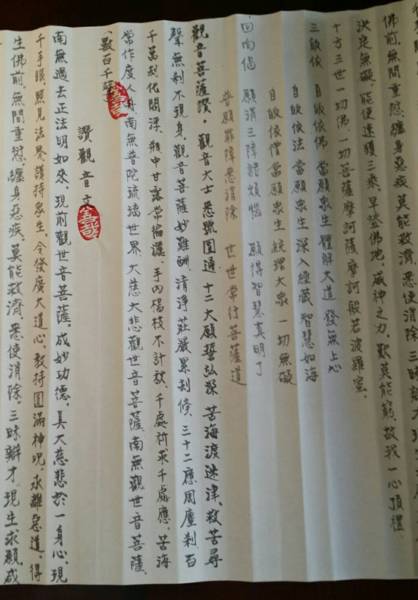 佛前。無間重愆。纏身惡疾。莫能救濟。悉使消除。三昧
決定無礙。能使速願三乘。早登佛地。威神之力。歎莫能窮。故我一心頂禮
十方三世一切佛 一切菩薩摩訶薩 摩訶般若波羅蜜。
三皈依 自皈依佛 當願眾生 體解大道 發無上心
自皈依法 當願眾生 深入經藏 智慧如海
自皈依僧 當願眾生 統理大眾 一切無礙
回向偈 願消三障諸煩惱 願得智慧真明了
普願罪障悉消除 世世常行菩薩道
觀音菩薩讚。觀音大士 悉號圓通 十二大願誓弘深 苦海渡迷津 救苦尋
聲 無剎不現身。觀音菩薩妙難酬。清淨莊嚴累劫修。三十二應周塵剎 百
千萬劫化閻浮。瓶中甘露常遍灑。手內楊枝不計秋 千處祈求千處應。苦海
常作度人舟 南無普陀琉璃世界 大慈大悲觀世音菩薩 南無觀世音菩薩。
數百千聲
讚觀音文
南無過去正法明如來。現前觀世音菩薩。成妙功德。具大慈悲於一身心。現
千手眼。照見法界。護持眾生。令發廣大道心。教持圓滿神咒。永離惡道。得
生佛前。無間重愆。纏身惡疾。莫能救濟。悉使消除。三昧辯才。現生求願。咸